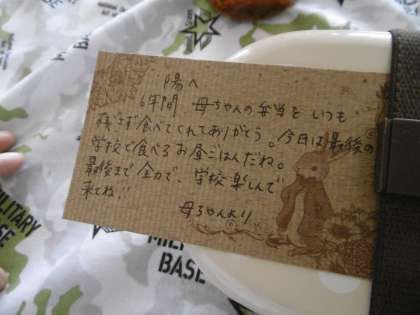 陽へ
6年間 母ちゃんの弁当を いつも
残さず食べてくれてありがとう。今日は最後の
学校で食べるお昼ごはんだね。
最後まで全力で、学校楽しんで
来てね!!
母ちゃんより
MILITARY
BASE
MIL
BASE